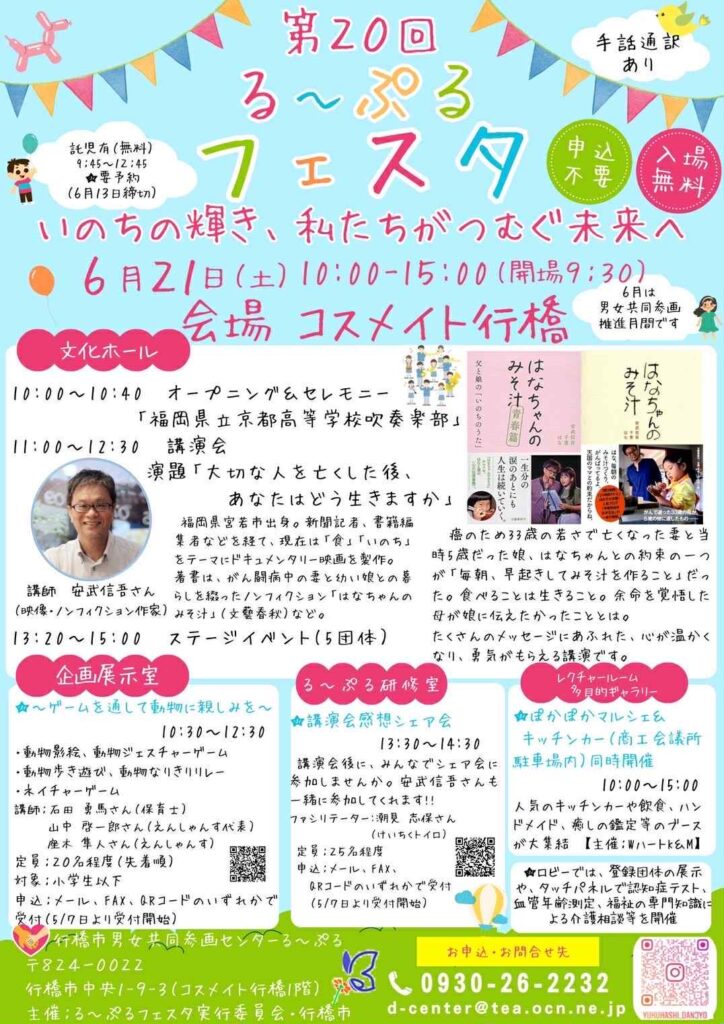 第20回
る～ぷる
フェスタ
手話通訳
あり
託児有(無料)
9:45～12:45
★要予約
(6月13日締切)
申込
不要
入場
無料
いのちの輝き、私たちがつむぐ未来へ
6月21日(土)10:00-15:00(開場9:30)
会場 コスメイト行橋
6月は
男女共同参画
推進月間です
文化ホール
10:00～10:40 オープニング&セレモニー
「福岡県立京都高等学校吹奏楽部」
11:00～12:30 講演会
演題「大切な人を亡くした後、
あなたはどう生きますか」
福岡県宮若市出身。新聞記者、書籍編
集者などを経て、現在は「食」「いのち」
をテーマにドキュメンタリー映画を製作。
著書は、がん闘病中の妻と幼い娘との暮
らしを綴ったノンフィクション「はなちゃんの
みそ汁」(文藝春秋)など。
講師 安武信吾さん
(映像・ノンフィクション作家)
13:20～15:00 ステージイベント(5団体)
はなちゃんの
みそ汁
青春篇
父と娘の「いのちのうた」
一生分の
涙のあとにも
人生は続いていく。
はなちゃんの
みそ汁
癌のため33歳の若さで亡くなった妻と当
時5歳だった娘、はなちゃんとの約束の一つ
が「毎朝、早起きしてみそ汁を作ること」だっ
た。食べることは生きること。余命を覚悟した
母が娘に伝えたかったこととは。
たくさんのメッセージにあふれた、心が温かく
なり、勇気がもらえる講演です。
企画展示室
★～ゲームを通して動物に親しみを～
10:30～12:30
・動物影絵、動物ジェスチャーゲーム
・動物歩き遊び、動物なりきりリレー
・ネイチャーゲーム
講師:石田 勇馬さん(保育士)
山中 啓一郎さん(えんしゃんす代表)
座木 隼人さん(えんしゃんす)
定員:20名程度(先着順)
対象:小学生以下
申込:メール、FAX、QRコードのいずれかで受
付(5/7日より受付開始)
る～ぷる研修室
★講演会感想シェア会
13:30～14:30
講演会後に、みんなでシェア会に
参加しませんか。安武信吾さんも
一緒に参加してくれます!!
ファシリテーター:潮見 志保さん
(けいちくトイロ)
定員:25名程度
申込:メール、FAX、
QRコードのいずれかで受付
(5/7日より受付開始)
レクチャールーム
多目的ギャラリー
★ぽかぽかマルシェ&
キッチンカー(商工会議所
駐車場内)同時開催
10:00～15:00
人気のキッチンカーや飲食、ハン
ドメイド、癒しの鑑定等のブース
が大集結 【主催:WハートK&M】
★ロビーでは、登録団体の展示
や、タッチパネルで認知症テスト、
血管年齢測定、福祉の専門知識に
よる介護相談等を開催
行橋市男女共同参画センターる～ぷる
〒824-0022
行橋市中央1-9-3(コスメイト行橋1階)
主催:る～ぷるフェスタ実行委員会・行橋市
お申込・お問合せ先
0930-26-2232
d-center@tea.ocn.ne.jp
YUKUHASHI_DANJYO